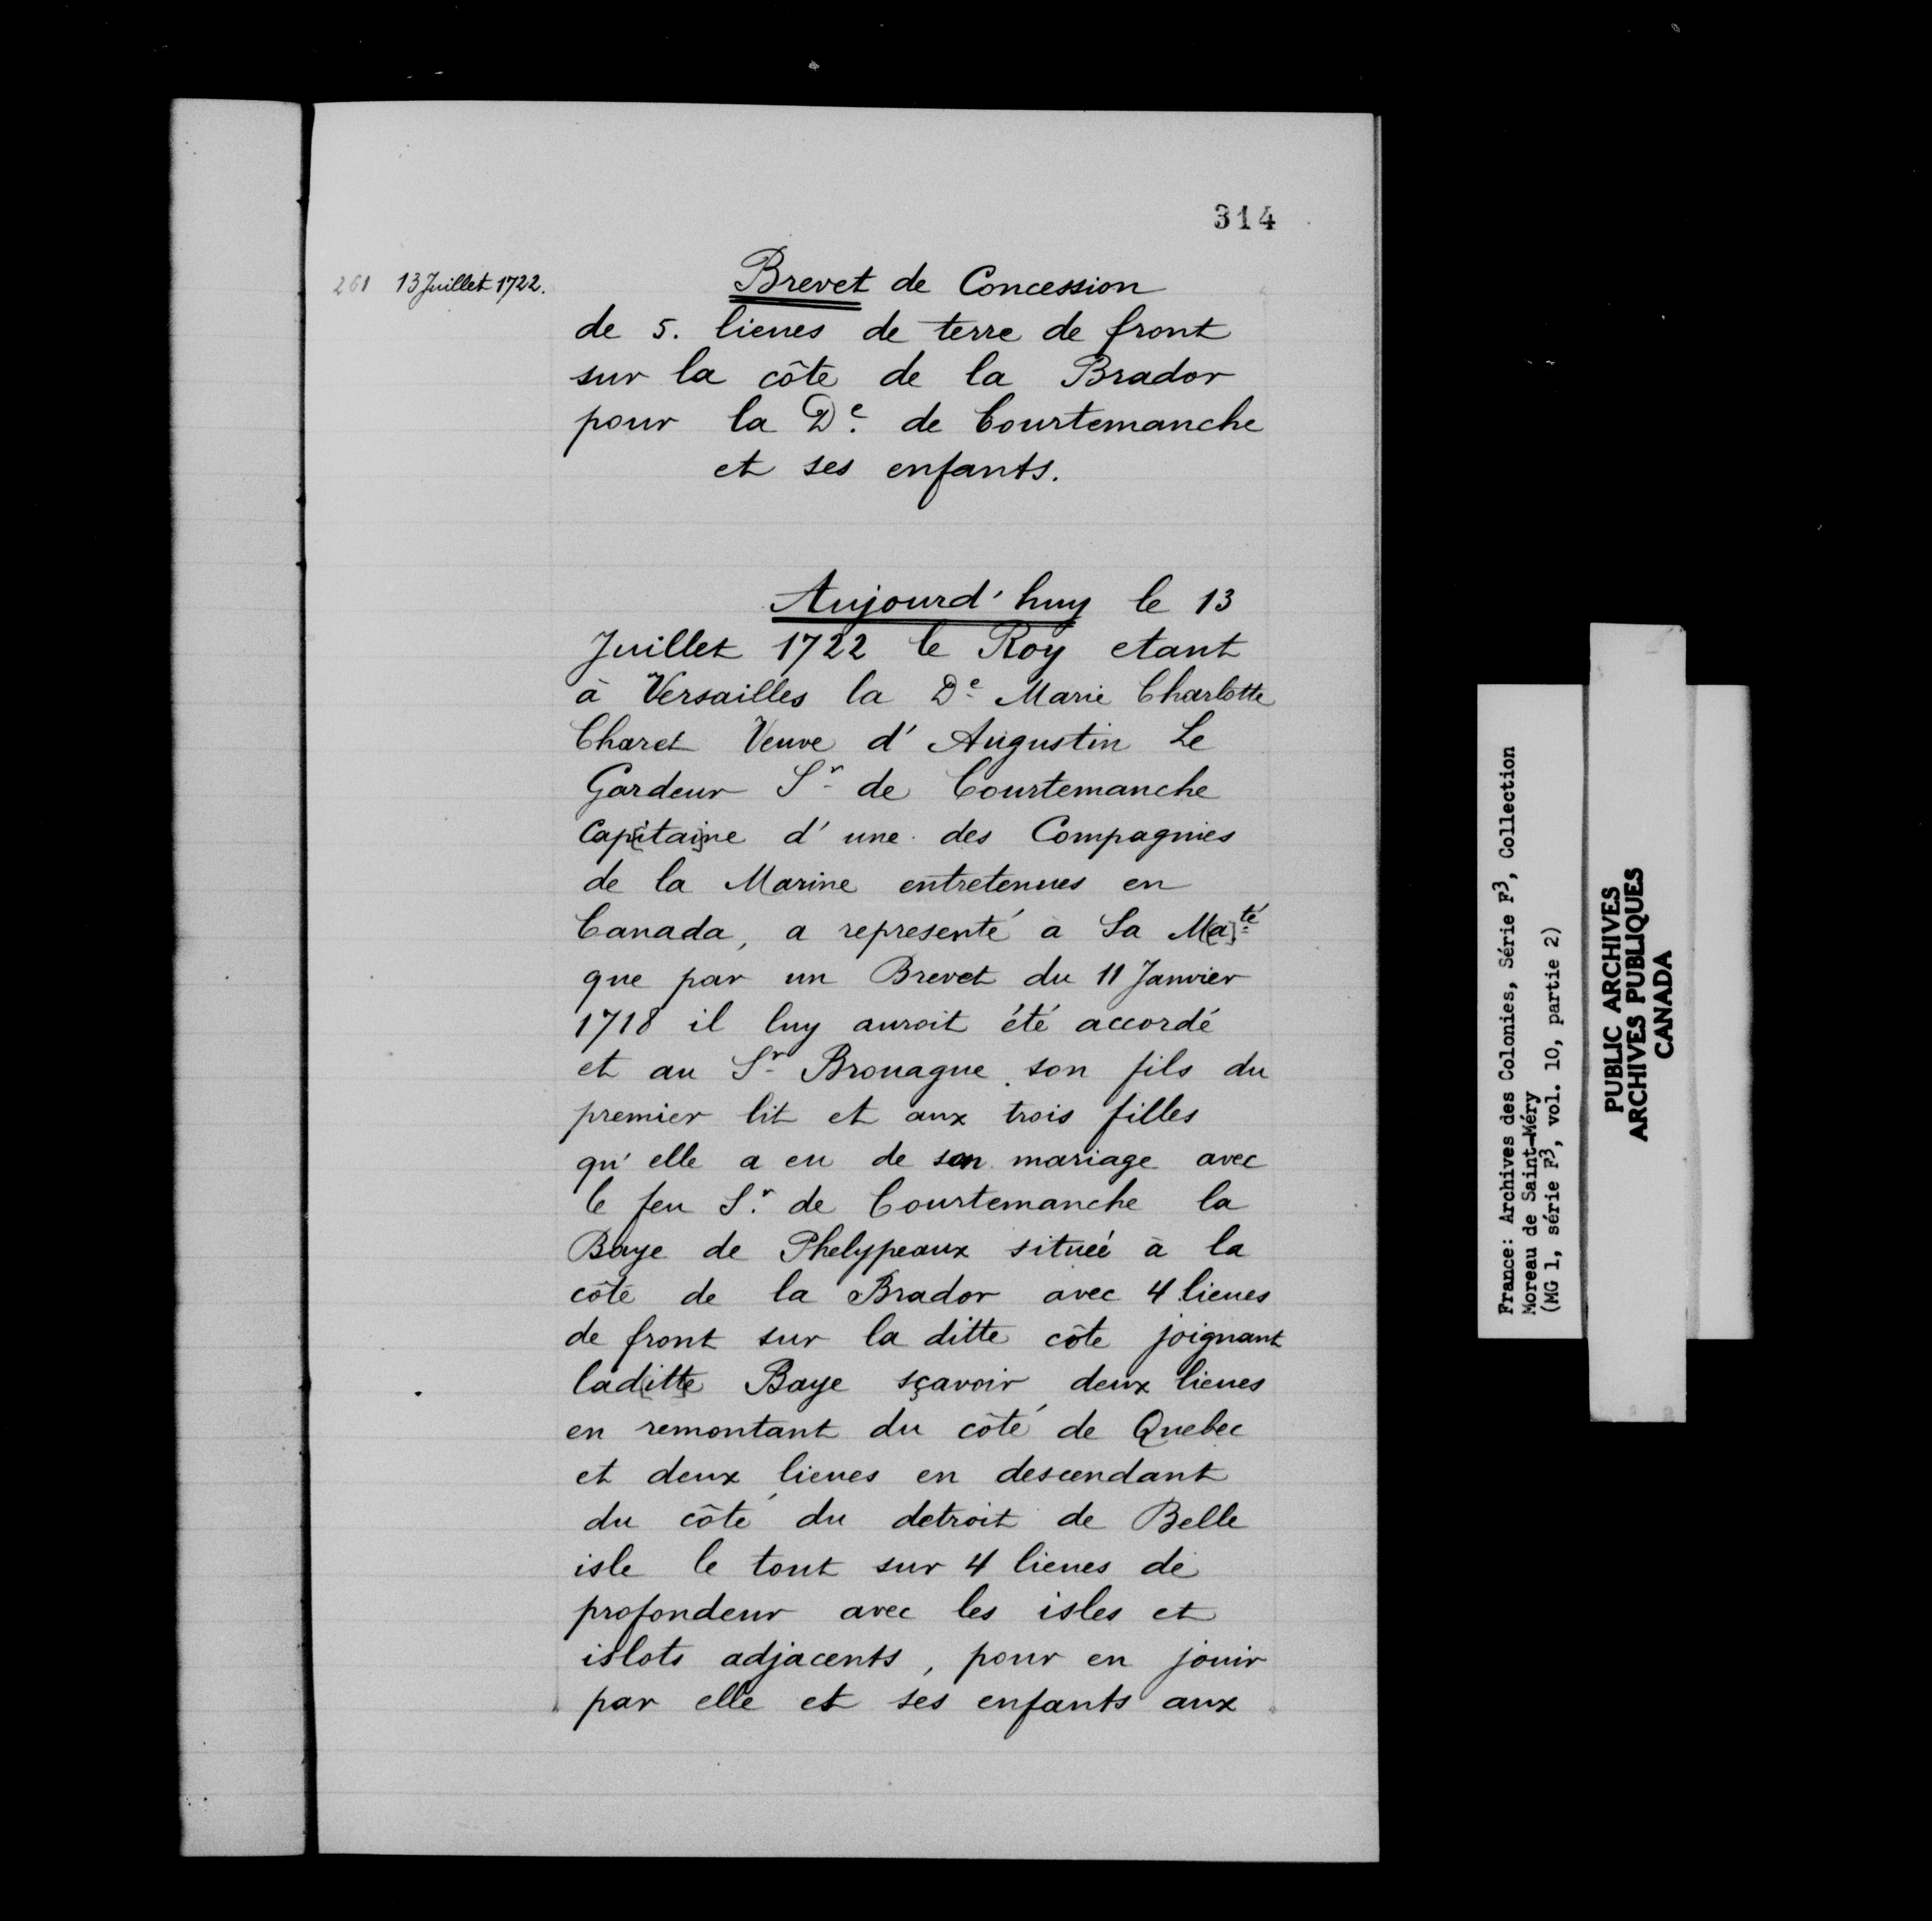 314
261 13 Juillet 1722.
Brevet de Concession
de 5. lieues de terre de front
sur la côte de la Brador
pour la De. de Courtemanche
et ses enfants.
Aujourd'huy le 13
Juillet 1722 le Roy etant
à Versailles la De Marie Charlotte
Charet Veuve d'Augustin Le
Gardeur Sr de Courtemanche
Cap[itai]ne d'une des Compagnies
de la Marine entretenues en
Canada, a representé a Sa M[a]té
que par un Brevet du 11 Janvier
1718 il luy auroit été accordé
et au Sr Brouague son fils du
premier lit et aux trois filles
qu'elle a eu de son mariage avec
le feu Sr. de Courtemanche la
Baye de Phelypeaux situeé à la
côte de la Brador avec 4 lieues
de front sur la ditte côte joignant
lad[itt]e Baye sçavoir deux lieues
en remontant du côté de Quebec
et deux lieues en descendant
du côté du detroit de Belle
isle le tout sur 4 lieues de
profondeur avec les isles et
islots adjacents, pour en jouir
par elle et ses enfants aux
France: Archives des Colonies, Série F3, Collection
Moreau de Saint-Méry
(MG 1, série F3, vol. 10, partie 2)
PUBLIC ARCHIVES
ARCHIVES PUBLIQUES
CANADA